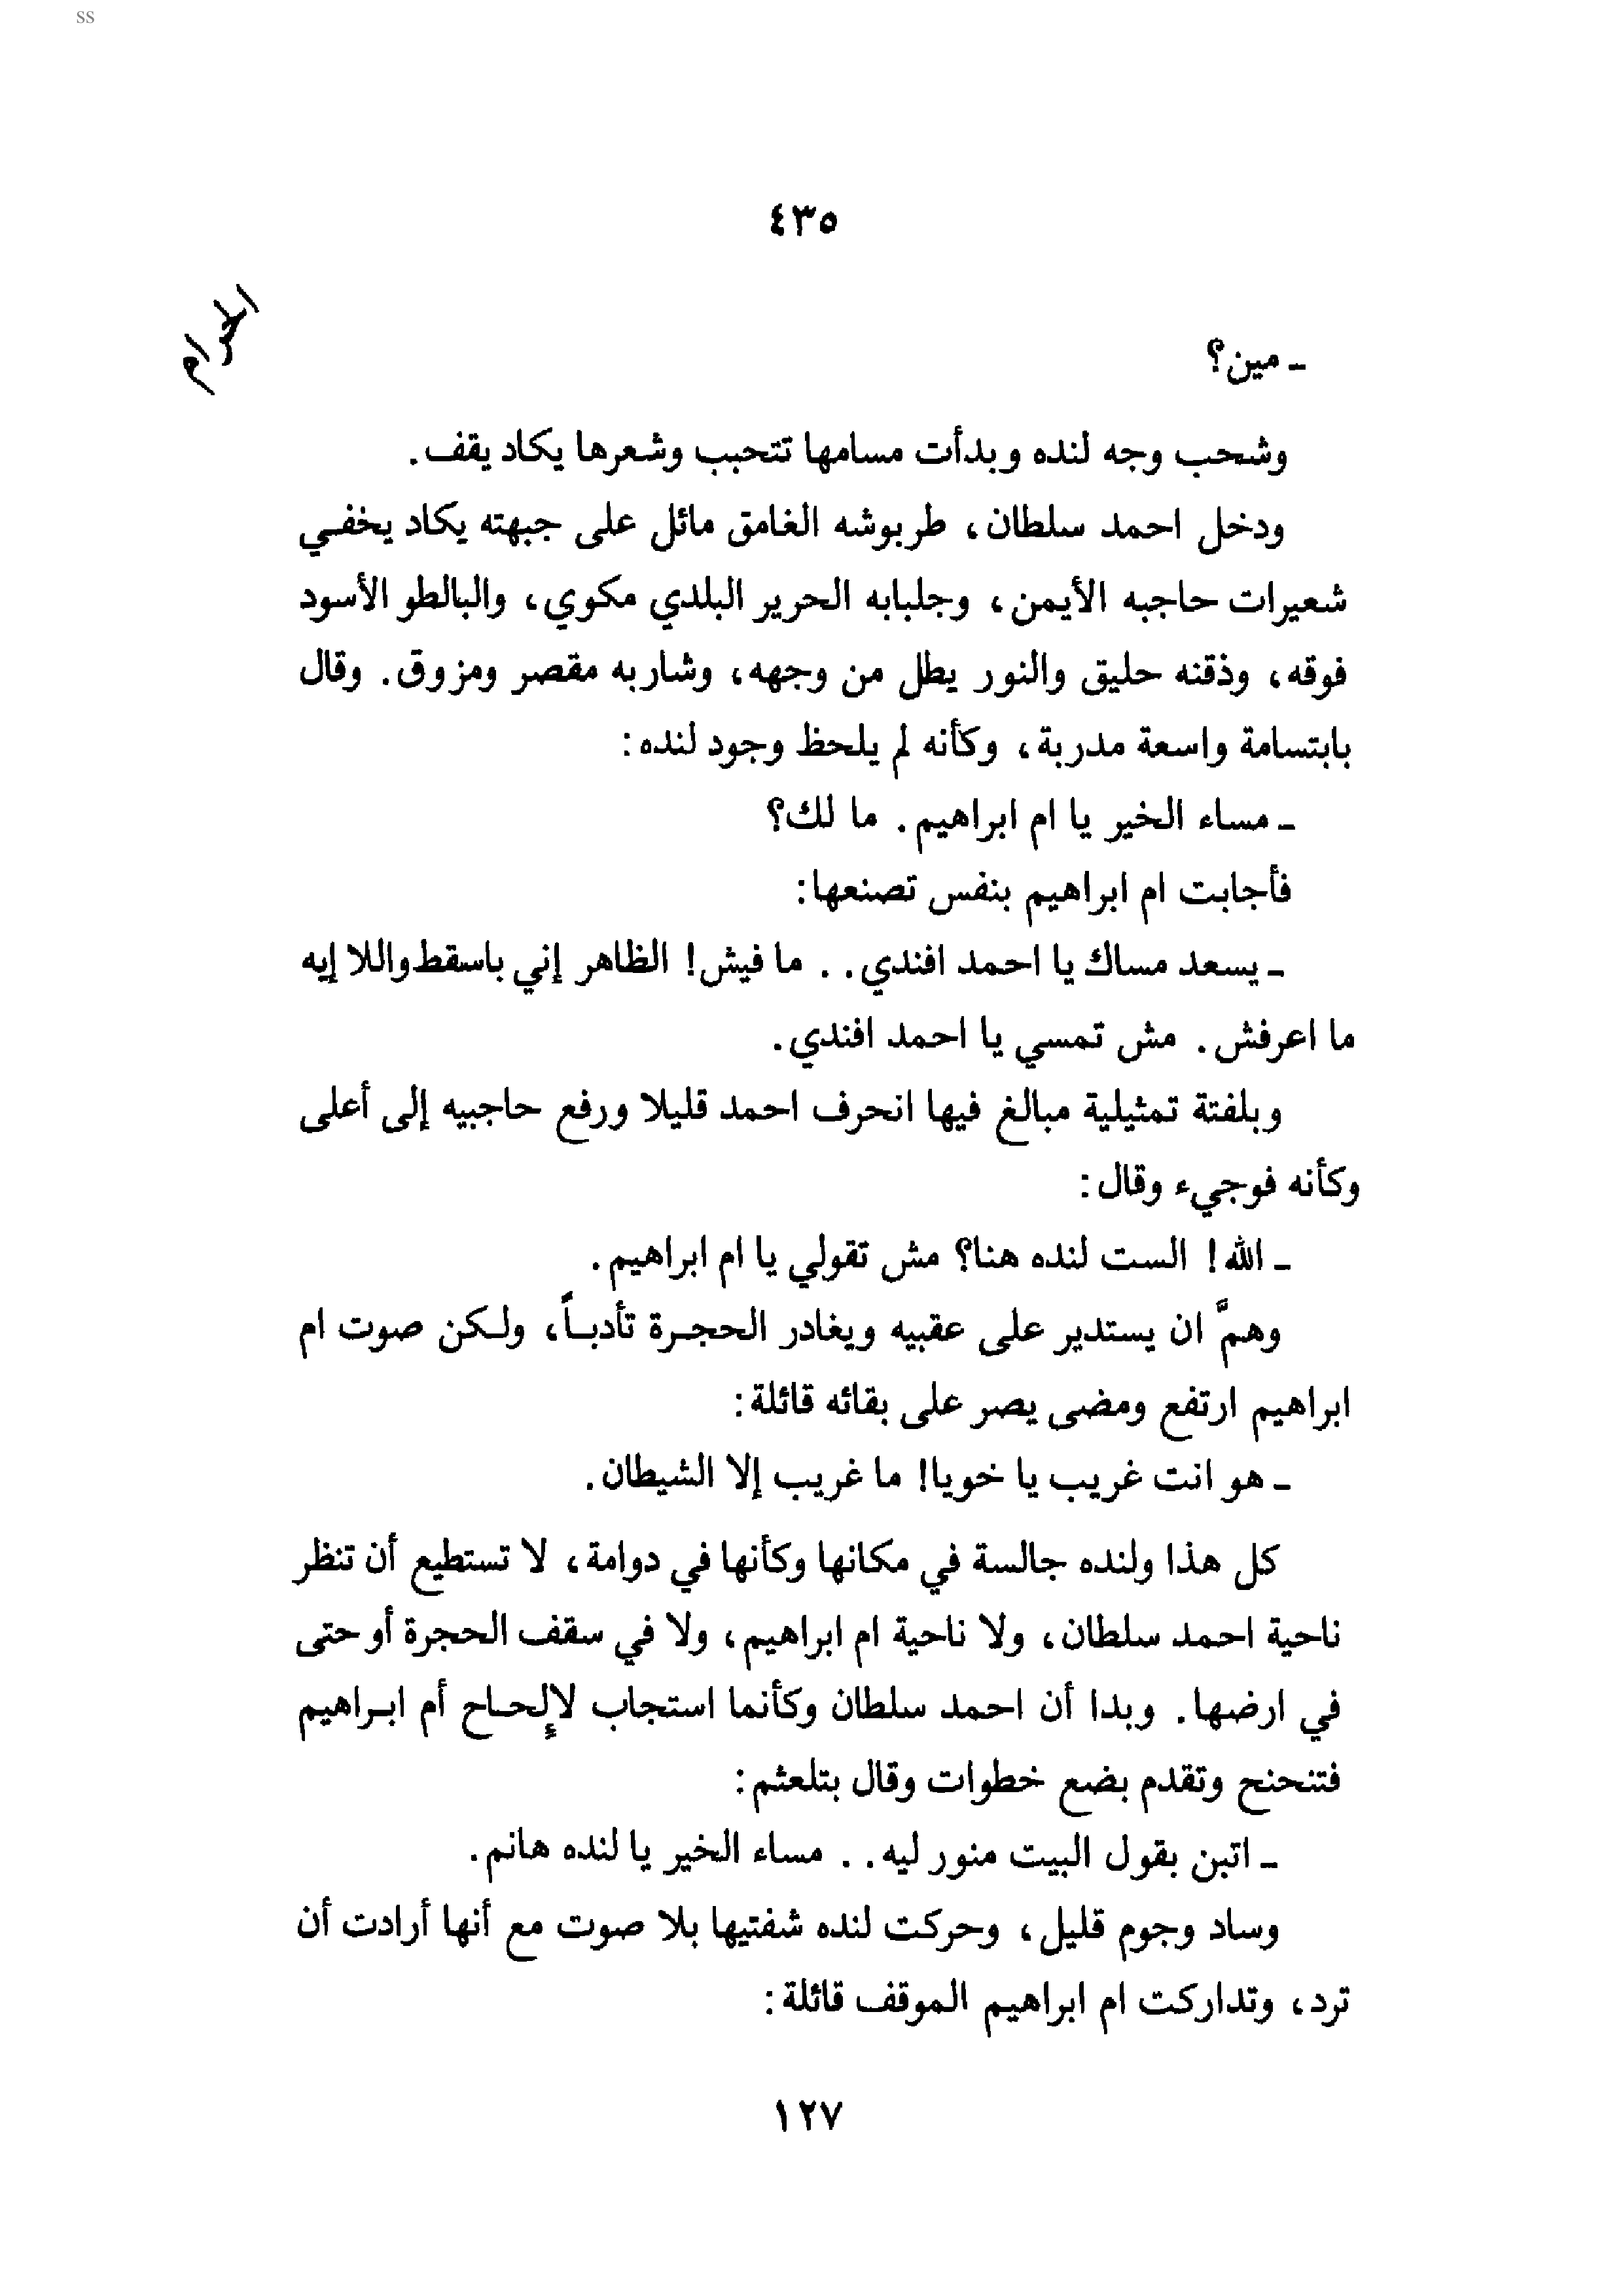 ss
٤٣٥
الحرام
ـ مين؟
وشحب وجه لنده وبدأت مسامها تتحبب وشعرها يكاد يقف.
ودخل احمد سلطان، طربوشه الغامق مائل على جبهته يكاد يخفي
شعيرات حاجبه الأيمن، وجلبابه الحرير البلدي مكوي، والبالطو الأسود
فوقه، وذقنه حليق والنور يطل من وجهه، وشاربه مقصر ومزوق. وقال
بابتسامة واسعة مدربة، وكأنه لم يلحظ وجود لنده:
ـ مساء الخير يا ام ابراهيم. ما لك؟
فأجابت ام ابراهيم بنفس تصنعها:
ـ يسعد مساك يا احمد افندي.. ما فيش! الظاهر إني باسقط واللا إيه
ما اعرفش. مش تمسي يا احمد افندي.
وبلفتة تمثيلية مبالغ فيها انحرف احمد قليلا ورفع حاجبيه إلى أعلى
وكأنه فوجيء وقال:
ـ الله! الست لنده هنا؟ مش تقولي يا ام ابراهيم.
وهمَّ ان يستدير على عقبيه ويغادر الحجرة تأدباً، ولكن صوت ام
ابراهيم ارتفع ومضى يصر على بقائه قائلة:
ـ هو انت غريب يا خويا! ما غريب إلا الشيطان.
كل هذا ولنده جالسة في مكانها وكأنها في دوامة، لا تستطيع أن تنظر
ناحية احمد سلطان، ولا ناحية ام ابراهيم، ولا في سقف الحجرة أو حتى
في ارضها. وبدا أن احمد سلطان وكأنما استجاب لإلحاح أم ابراهيم
فتنحنح وتقدم بضع خطوات وقال بتلعثم:
ـ اتبن بقول البيت منور ليه.. مساء الخير يا لنده هانم.
وساد وجوم قليل، وحركت لنده شفتيها بلا صوت مع أنها أرادت أن
ترد، وتداركت ام ابراهيم الموقف قائلة:
١٢٧